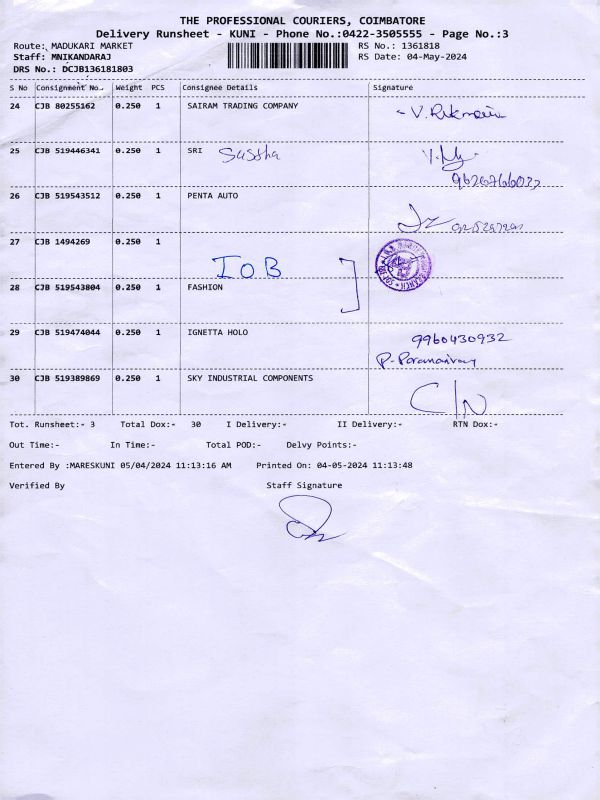 THE PROFESSIONAL COURIERS, COIMBATORE
Delivery Runsheet - KUNI - Phone No.:0422-3505555 - Page No.:3
Route: MADUKARI MARKET
RS No.: 1361818
Staff: MNIKANDARAJ
RS Date: 04-May-2024
DRS No.: DCJB136181803
S No Consignment No. Weight PCS Consignee Details Signature
24 CJB 80255162 0.250 1 SAIRAM TRADING COMPANY
25 CJB 519446341 0.250 1 SRI
26 CJB 519543512 0.250 1 PENTA AUTO
27 CJB 1494269 0.250 1
IOB
28 CJB 519543804 0.250 1 FASHION
29 CJB 519474044 0.250 1 IGNETTA HOLO
9960430932
30 CJB 519389869 0.250 1 SKY INDUSTRIAL COMPONENTS
C/N
Tot. Runsheet:- 3 Total Dox:- 30 I Delivery:- II Delivery:- RTN Dox:-
Out Time:- In Time:- Total POD:- Delvy Points:-
Entered By :MARESKUNI 05/04/2024 11:13:16 AM Printed On: 04-05-2024 11:13:48
Verified By Staff Signature